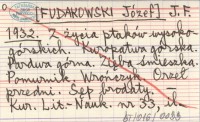 [FUDAKOWSKI Józef] J.F.
1932. Z życia ptaków wysoko-
górskich. Kuropatwa górska.
Pardwa górna. Zięba śnieżka.
Pomurnik. Wrończyk. Orzeł
przedni. Sęp brodaty.
Kur. Lit.-Nauk. nr 33, il.